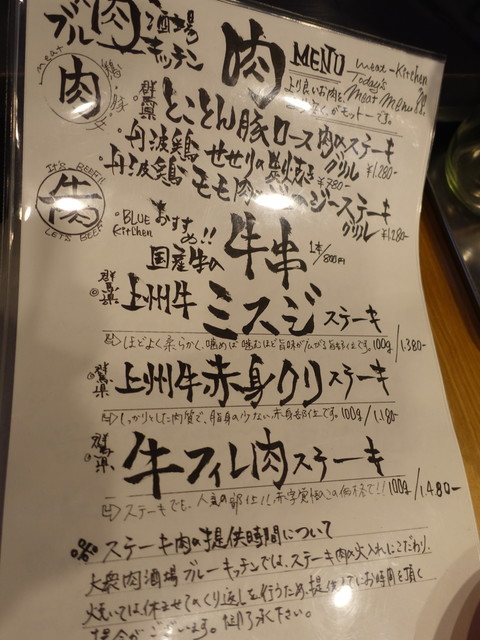 ブルー 肉 酒場
キッチン
肉 MENU
meat-Kitchen
Today's
Meat Menu
meat
肉
鶏・豚
より良いお肉を、
がモットーです。
群馬県 とことん豚 ロース肉のステーキ
グリル ¥1,280-
丹波鶏 せせりの炭焼き ¥780-
丹波鶏 モモ肉 ジューシーステーキ
グリル ¥1,280-
It's BEEF!!
牛
LET'S BEEF
BLUE Kitchen
おすすめ!!
国産牛の 牛串 1本/800円
群馬県 上州牛 ミスジ ステーキ
ほどよく柔らかく、噛めば噛むほど旨味が広がる旨味です。100g/1,380-
群馬県 上州牛 赤身クリ ステーキ
しっかりとした肉質で、脂身の少ない赤身部位です。100g/1,180-
群馬県 牛フィレ肉ステーキ
ステーキでも、人気の部位!!赤字覚悟のこの価格で!!100g/1,480-
※ステーキ肉の提供時間について
大衆肉酒場ブルーキッチンでは、ステーキ肉の火入れにこだわり、
焼いては休ませてのくり返しを行うため、提供までにお時間を頂く
場合がございます。御了承ください。